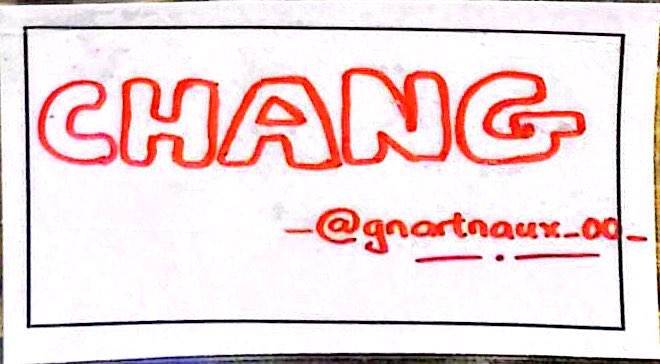 CHANG
-@gnartnaux_00_